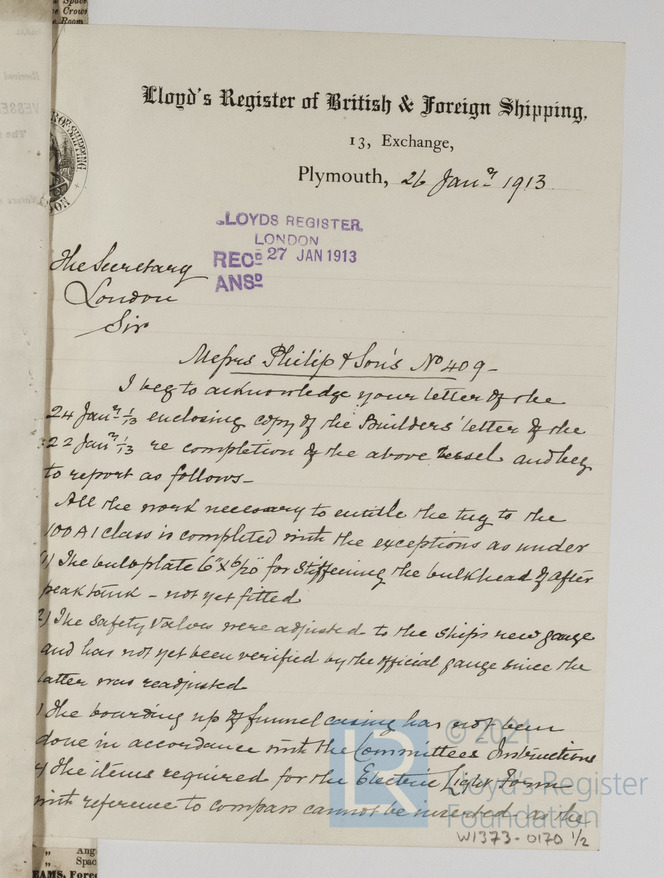 Lloyd's Register of British & Foreign Shipping,
13, Exchange,
Plymouth, 26 Jany 1913
LLOYDS REGISTER,
LONDON
RECD 27 JAN 1913
ANSD
The Secretary
London
Sir
Messrs Philip & Son's No 409-
I beg to acknowledge your letter of the
24 Jany 1/13 enclosing copy of the Builders' letter of the
22 Jany 1/13 re completion of the above vessel and beg
to report as follows-
All the work necessary to entitle the tug to the
100A1 class is completed with the exceptions as under
1) The bulb plate 6" x 6/20" for stiffening the bulkhead of after
peak tank - not yet fitted
2) The safety valves were adjusted to the ship's new gauge
and has not yet been verified by the official gauge since the
latter was readjusted
) The boarding up of funnel casing has not been
done in accordance with the Committee's Instructions
4) The items required for the Electric Light Form
with reference to compass cannot be inserted as the
© 2021
Lloyd's Register
Foundation
W1373-0170 1/2
Space
Crow
Room
REGISTER OF SHIPPING
Ang
Spac
EAMS, Fore